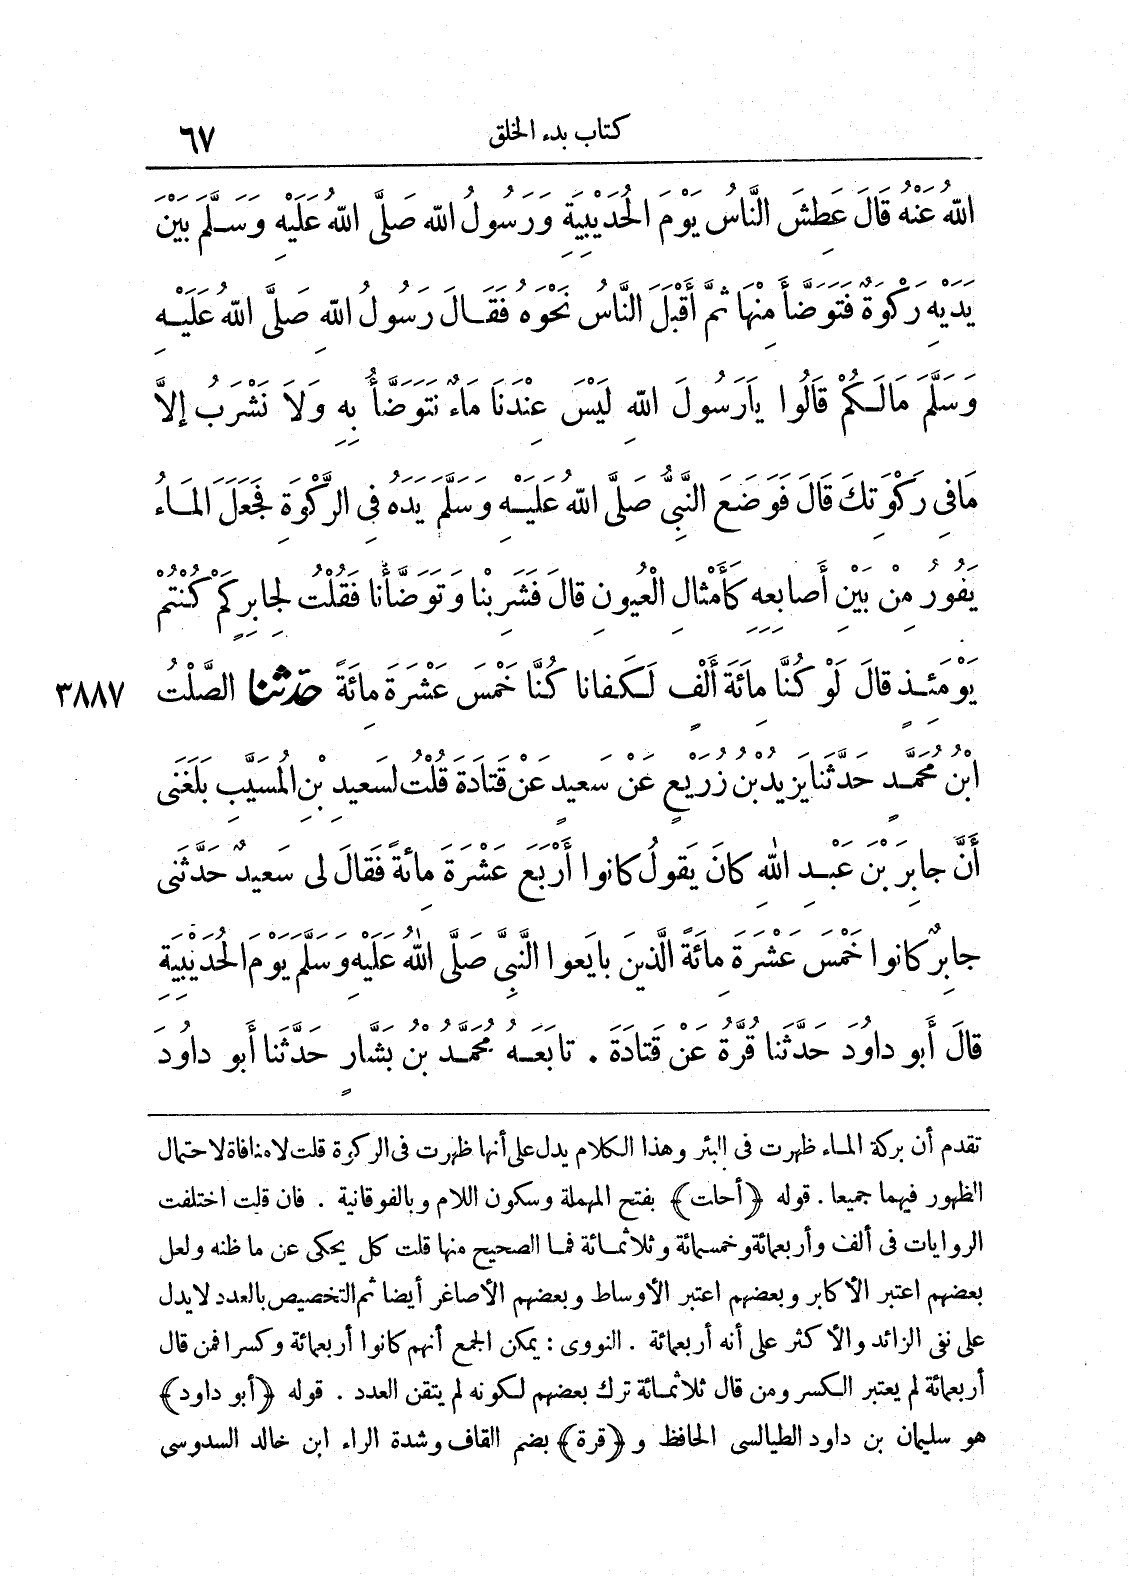 كتاب بدء الخلق ٦٧
اللهُ عَنْهُ قَالَ عَطِشَ النَّاسُ يَوْمَ الْحُدَيْبِيَةِ وَرَسُولُ اللهِ صَلَّى اللهُ عَلَيْهِ وَسَلَّمَ بَيْنَ
يَدَيْهِ رَكْوَةٌ فَتَوَضَّأَ مِنْهَا ثُمَّ أَقْبَلَ النَّاسُ نَحْوَهُ فَقَالَ رَسُولُ اللهِ صَلَّى اللهُ عَلَيْهِ
وَسَلَّمَ مَالَكُمْ قَالُوا يَارَسُولَ اللهِ لَيْسَ عِنْدَنَا مَاءٌ نَتَوَضَّأُ بِهِ وَلَا نَشْرَبُ إلَّا
مَافِى رَكْوَتِكَ قَالَ فَوَضَعَ النَّبِىُّ صَلَّى اللهُ عَلَيْهِ وَسَلَّمَ يَدَهُ فِى الرَّكْوَةِ فَجَعَلَ المَاءُ
يَفُورُ مِنْ بَيْنِ أَصَابِعِهِ كَأَمْثَالِ الْعُيونِ قالَ فَشَرِبْنا وَتَوَضَّأْنا فَقُلْتُ لِجابِرٍ كَمْ كُنْتُمْ
يَوْمَئِذٍ قالَ لَوْ كُنَّا مِائَةَ أَلْفٍ لَكَفانا كُنَّا خَمْسَ عَشْرَةَ مِائَةً حَدَّثَنا الصَّلْتُ ٣٨٨٧
ابْنُ مُحَمَّدٍ حَدَّثَنا يَزِيدُ بْنُ زُرَيْعٍ عَنْ سَعِيدٍ عَنْ قَتادَةَ قُلْتُ لِسَعِيدِ بْنِ الْمُسَيَّبِ بَلَغَنى
أَنَّ جابِرَ بْنَ عَبْدِ اللهِ كانَ يَقُولُ كانوا أَرْبَعَ عَشْرَةَ مِائَةً فَقالَ لِى سَعِيدٌ حَدَّثَنى
جابِرٌ كانوا خَمْسَ عَشْرَةَ مِائَةً الَّذِينَ بايَعوا النَّبِىَّ صَلَّى اللهُ عَلَيْهِ وَسَلَّمَ يَوْمَ الْحُدَيْبِيَةِ
قالَ أَبو داوُدَ حَدَّثَنا قُرَّةُ عَنْ قَتادَةَ . تابَعَهُ مُحَمَّدُ بْنُ بَشَّارٍ حَدَّثَنا أَبو داوُدَ
تقدم أن بركة الماء ظهرت فى البئر وهذا الكلام يدل على أنها ظهرت فى الركوة قلت لامنافاة لاحتمال
الظهور فيهما جميعا . قوله ﴿أحلت﴾ بفتح المهملة وسكون اللام وبالفوقانية . فان قلت اختلفت
الروايات فى ألف وأربعمائة وخمسمائة وثلاثمائة فما الصحيح منها قلت كل يحكى عن ما ظنه ولعل
بعضهم اعتبر الأكابر وبعضهم اعتبر الأوساط وبعضهم الأصاغر أيضا ثم التخصيص بالعدد لايدل
على نفى الزائد والأكثر على أنه أربعمائة . النووى : يمكن الجمع أنهم كانوا أربعمائة وكسرا فمن قال
أربعمائة لم يعتبر الكسر ومن قال ثلاثمائة ترك بعضهم لكونه لم يتقن العدد . قوله ﴿أبو داود﴾
هو سليمان بن داود الطيالسى الحافظ و﴿قرة﴾ بضم القاف وشدة الراء ابن خالد السدوسى